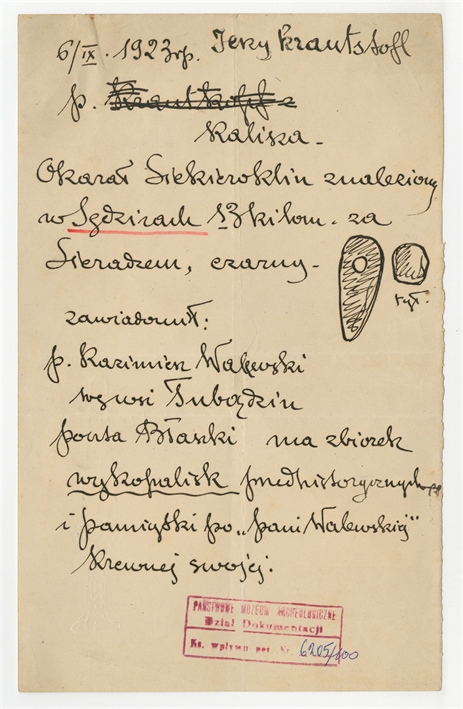 6/IX. 1923 rp. Jerzy Krautstofl
p. Krautkopf z
Kalisza.
Okazał Siekieroklin znaleziony
w Sędzicach 13 kilom. za
Sieradzem, czarny.
tył.
zawiadomił:
p. Kazimierz Walewski
we wsi Tubądzin
poczta Błaszki ma zbiorek
wykopalisk przedhistorycznych
i pamiątki po „pani Walewskiej"
krewnej swojej.
PAŃSTWOWE MUZEUM ARCHEOLOGICZNE
Dział Dokumentacji
Ks. wpływu poz. Nr. 6205/100